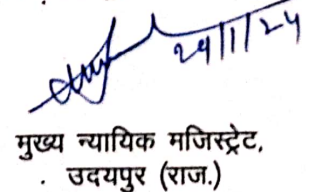 24/1/24
मुख्य न्यायिक मजिस्ट्रेट,
. उदयपुर (राज.)